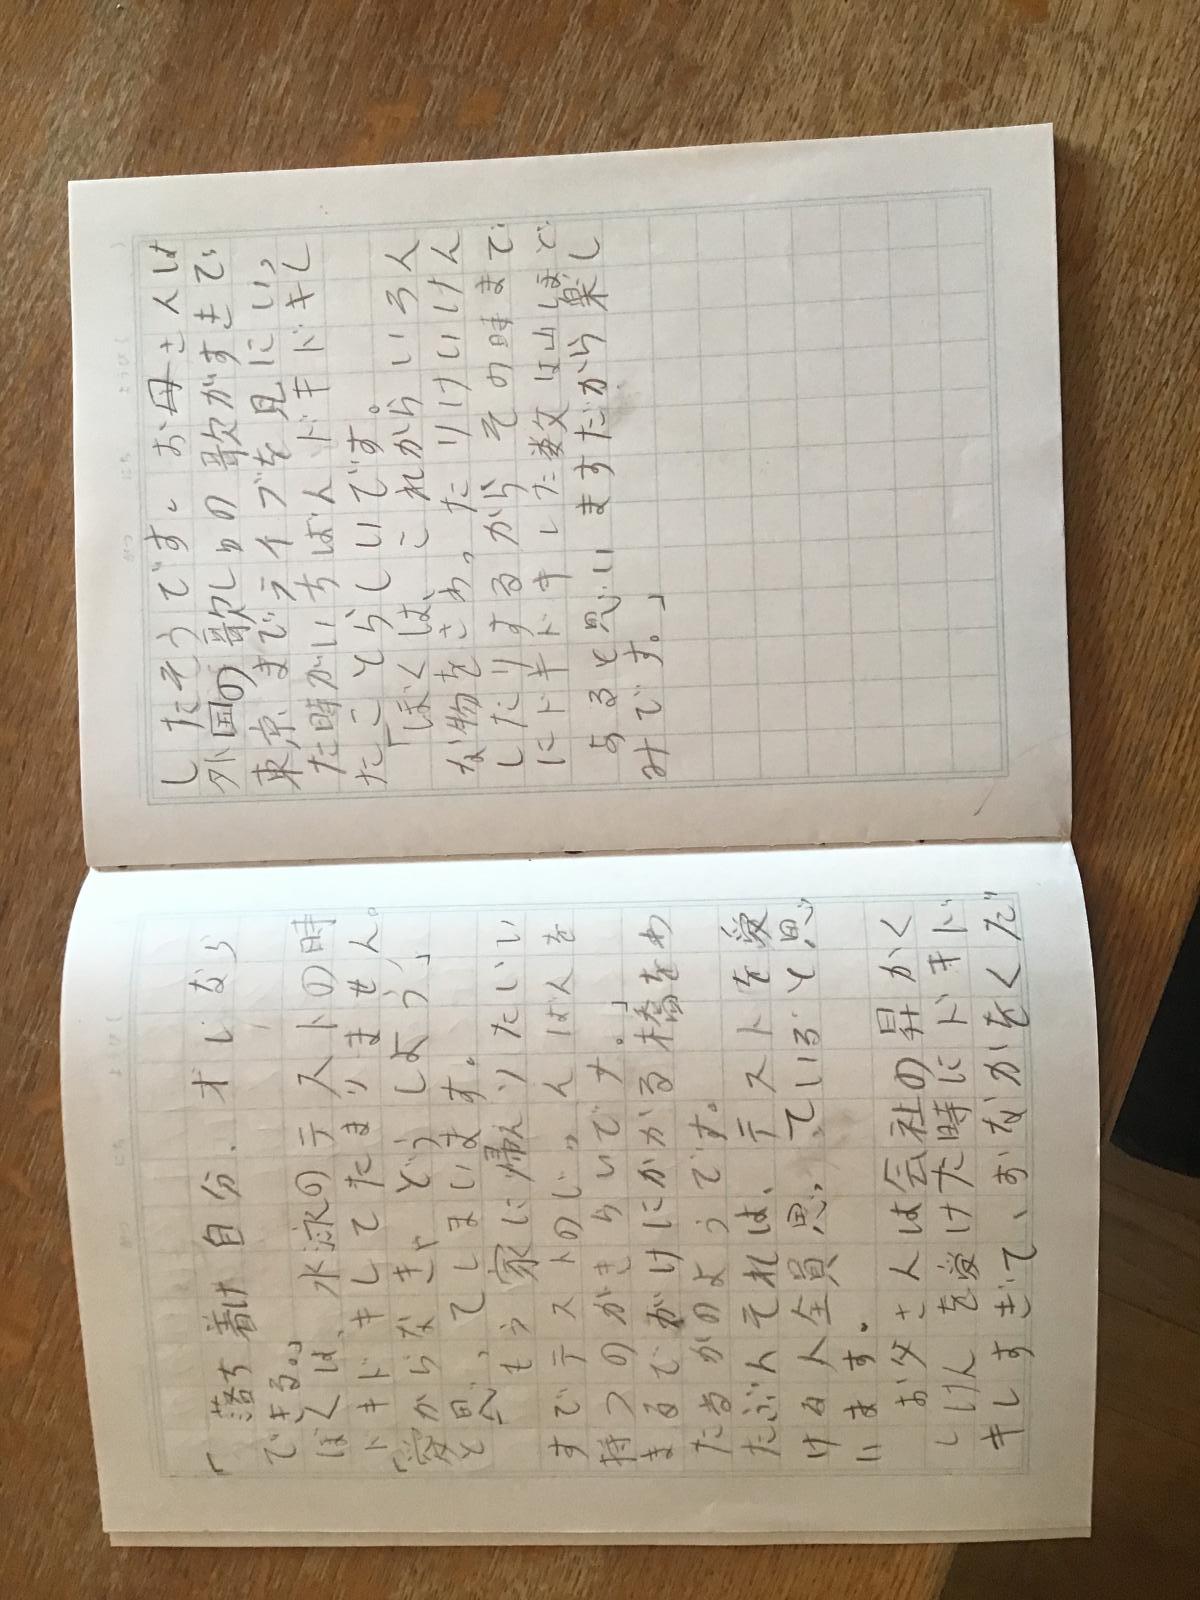 「落ち着け自分、オレなら
できる。」
ぼくは、水泳のテストの時
ドキドキしてたまりません。
「受からなきゃどうしよう、」
と思ってしまいます。
「もう家に帰りたいい
すでテストのじゅんばんを
持つのがきらいです。」
まるでがけにかかる橋をわ
たるかのようです。
たぶんそれは、テストを受
ける人全員思っていると思
います。
お父さんは会社の昇かく
しけんを受けた時にドキド
キしすぎて、おなかをくだ
したそうです。お母さんは
外国の歌しゅの歌がすきで
東京までライブを見にいっ
た時がいちばんドキドキし
たことらしいです。
「ぼくは、これからいろん
な物をさわったりけいけん
したりするからその時まで
にドキドキした数は山
あると思いますだから楽し
みです。」